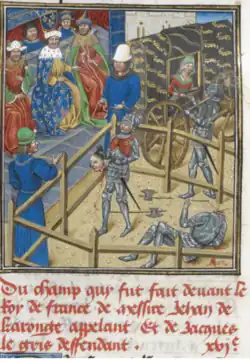 Du champ quy fut fait devant le
Roy de france de messire Jehan de
karonge apelant Et de Jacques
le gris deffendant . xvj c